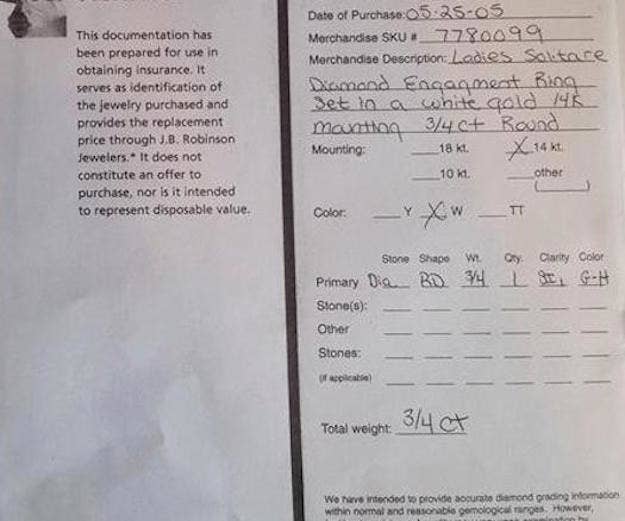 This documentation has
been prepared for use in
obtaining insurance. It
serves as identification of
the jewelry purchased and
provides the replacement
price through J.B. Robinson
Jewelers.* It does not
constitute an offer to
purchase, nor is it intended
to represent disposable value.
Date of Purchase: 05-25-05
Merchandise SKU # 7780099
Merchandise Description: Ladies Solitare
Diamond Engagment Ring
Set in a white gold 14K
mounting 3/4 ct Round
Mounting: 18 kt. X 14 kt.
10 kt. other
Color: Y X W TT
Stone Shape Wt. Qty. Clarity Color
Primary Dia RD 3/4 1 SI1 G-H
Stone(s):
Other
Stones:
(if applicable)
Total weight: 3/4 ct
We have intended to provide accurate diamond grading information
within normal and reasonable gemological ranges. However,